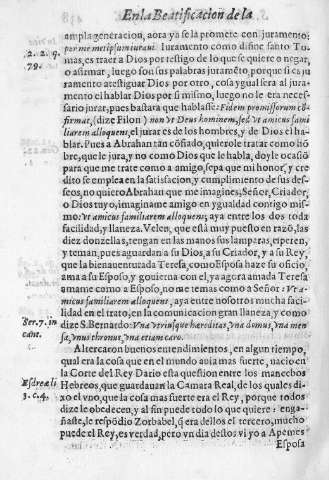 En la Beatificacion de la
ampla generacion, aora ya se la promete con juramento:
per me metipsum iuraui. Iuramento como difine santo To-
2. 2. q.
mas, es traer a Dios por testigo de lo que se quiere o negar,
79.
o afirmar, luego son sus palabras juramẽto, porque si es ju
ramento atestiguar Dios por otro, cosa ygual sera al jura
mento el hablar Dios por si mismo, luego no le era neces-
sario jurar, pues bastaua que hablasse: Fidem promissorum cõ
firmat, (dize Filon) non vt Deus hominem, sed vt amicus fami
liarem alloquens, el jurar es de los hombres, y de Dios el ha-
blar. Pues a Abrahan tãn cõfiado, quierole tratar como hõ
bre, que le jura, y no como Dios que le habla, doyle ocasiõ
para que me trate como a amigo, sepa que mi honor, y cre
dito se emplea en la satisfacion, y cumplimiento de sus des-
seos, no quiero Abrahan que me imagines, Señor, Criador,
o Dios tuyo, imaginame amigo en ygualdad contigo mis-
mo: Vt amicus familiarem alloquens; aya entre los dos toda
facilidad, y llaneza. Velen, que està muy puesto en razõ, las
diez donzellas, tengan en las manos sus lamparas, esperen,
y teman, pues aguardan a su Dios, a su Criador, y a su Rey,
que la bienauenturada Teresa, como Esposa haze su oficio,
ama a su Esposo, y gouierna con el, ya agora amada Teresa
amame como a Esposo, no me temas como a Señor: Vt a-
micus familiarem alloquens, aya entre nosotros mucha faci-
lidad en el trato, en la comunicacion gran llaneza, y como
Ser. 7. in
cant.
dize S. Bernardo: Vna vtriusque hæreditas, vna domus, vna men
sa, vnus thronus, vna etiam caro.
Altercaron buenos entendimientos, en algun tiempo,
qual era la cosa que en el mundo auia mas fuerte, nacio en
la Corte del Rey Dario esta question entre los mancebos
Esdræ. li
Hebreos, que guardauan la Camara Real, de los quales di-
3. c. 4.
xo el vno, que la cosa mas fuerte era el Rey, porque todos
dize le obedecen, y al fin puede todo lo que quiere: enga-
ñaste, le respõdio Zorbabel, q̃ era dellos el tercero, mucho
puede el Rey, es verdad, pero vn dia destos vi yo a Apemes
Esposa